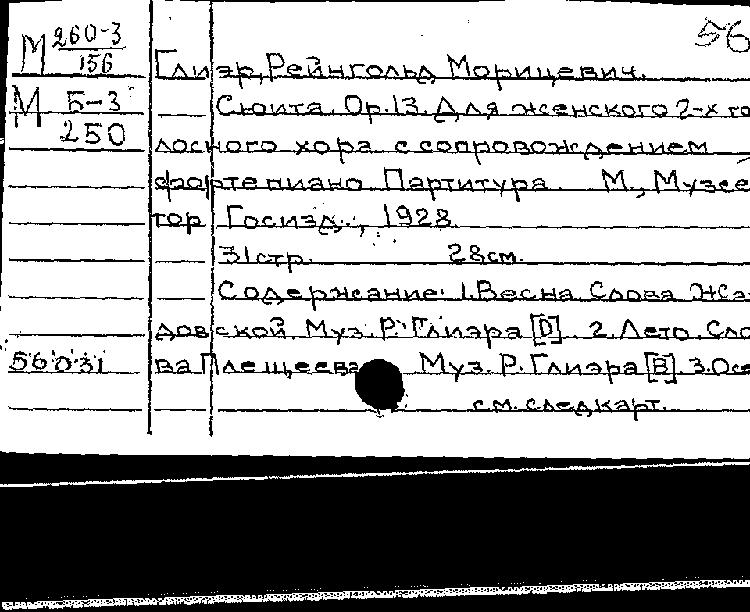 56
М 260-3
156
Глиэр, Рейнгольд Морицевич.
М Б-3
250
Сюита. Ор.13. Для женского 2-х го
лосного хора с сопровождением
фортепиано. Партитура. М., Музсе
тор Госизд., 1928.
31стр. 28см.
Содержание: 1.Весна. Слова Жа
довской. Муз. Р. Глиэра [D]. 2. Лето. Сло
56031
ва Плещеева Муз. Р. Глиэра [B]. 3.Осе
см. след карт.